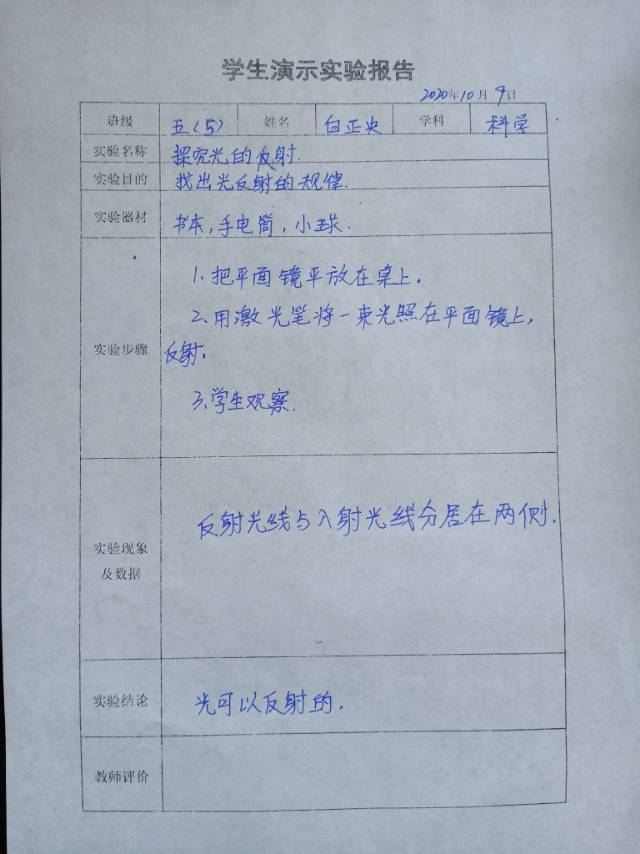 学生演示实验报告
2020年10月9日
班级 五(5) 姓名 白正央 学科 科学
实验名称 探究光的反射.
实验目的 找出光反射的规律.
实验器材 书本,手电筒,小球.
实验步骤
1.把平面镜平放在桌上.
2.用激光笔将一束光照在平面镜上,
反射.
3.学生观察.
实验现象
及数据
反射光线与入射光线分居在两侧.
实验结论 光可以反射的.
教师评价